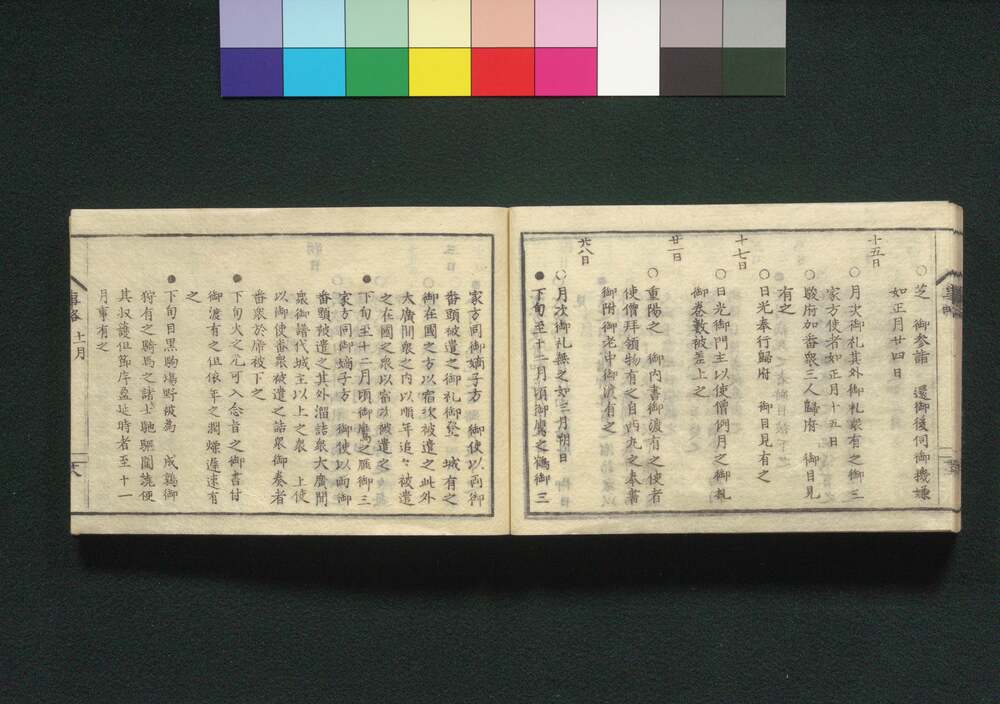 ○芝　御参詣　還御後伺御機嫌
如正月廿四日
十五日
○月次御礼其外御礼衆有之御三
家方使者如正月十五日
○駿府加番衆三人歸府　御目見
有之
十七日
○日光奉行歸府　御目見有之
○日光御門主以使僧例月之御札
御巻数被差上之
廿一日
○重陽之　御内書御渡有之使者
使僧拝領物有之自西丸之奉書
御附御老中御渡有之
廿八日
○月次御礼無之如三月朔日
●下旬至十二月頃御鷹之鶴御三
家方同御嫡子方　御使以両御
番頭被遣之御礼御登　城有之
○御在國之方以宿次被遣之此外
大廣間衆之内以順年追々被遣
之在國之衆以宿次被遣之
●下旬至十二月頃御鷹之雁御三
家方同御嫡子方　御使以両御
番頭被遣之其外溜詰衆大廣間
衆御譜代城主以上之衆　上使
以御使番衆被遣之詰衆御奏者
番衆於席被下之
●下旬火之元可入念旨之御書付
御渡有之但依年之潤燥遅速有
之
●下旬目黒駒場野被為　成鶉御
狩有之騎馬之諸士馳驅圍境便
其
月事有之
十月